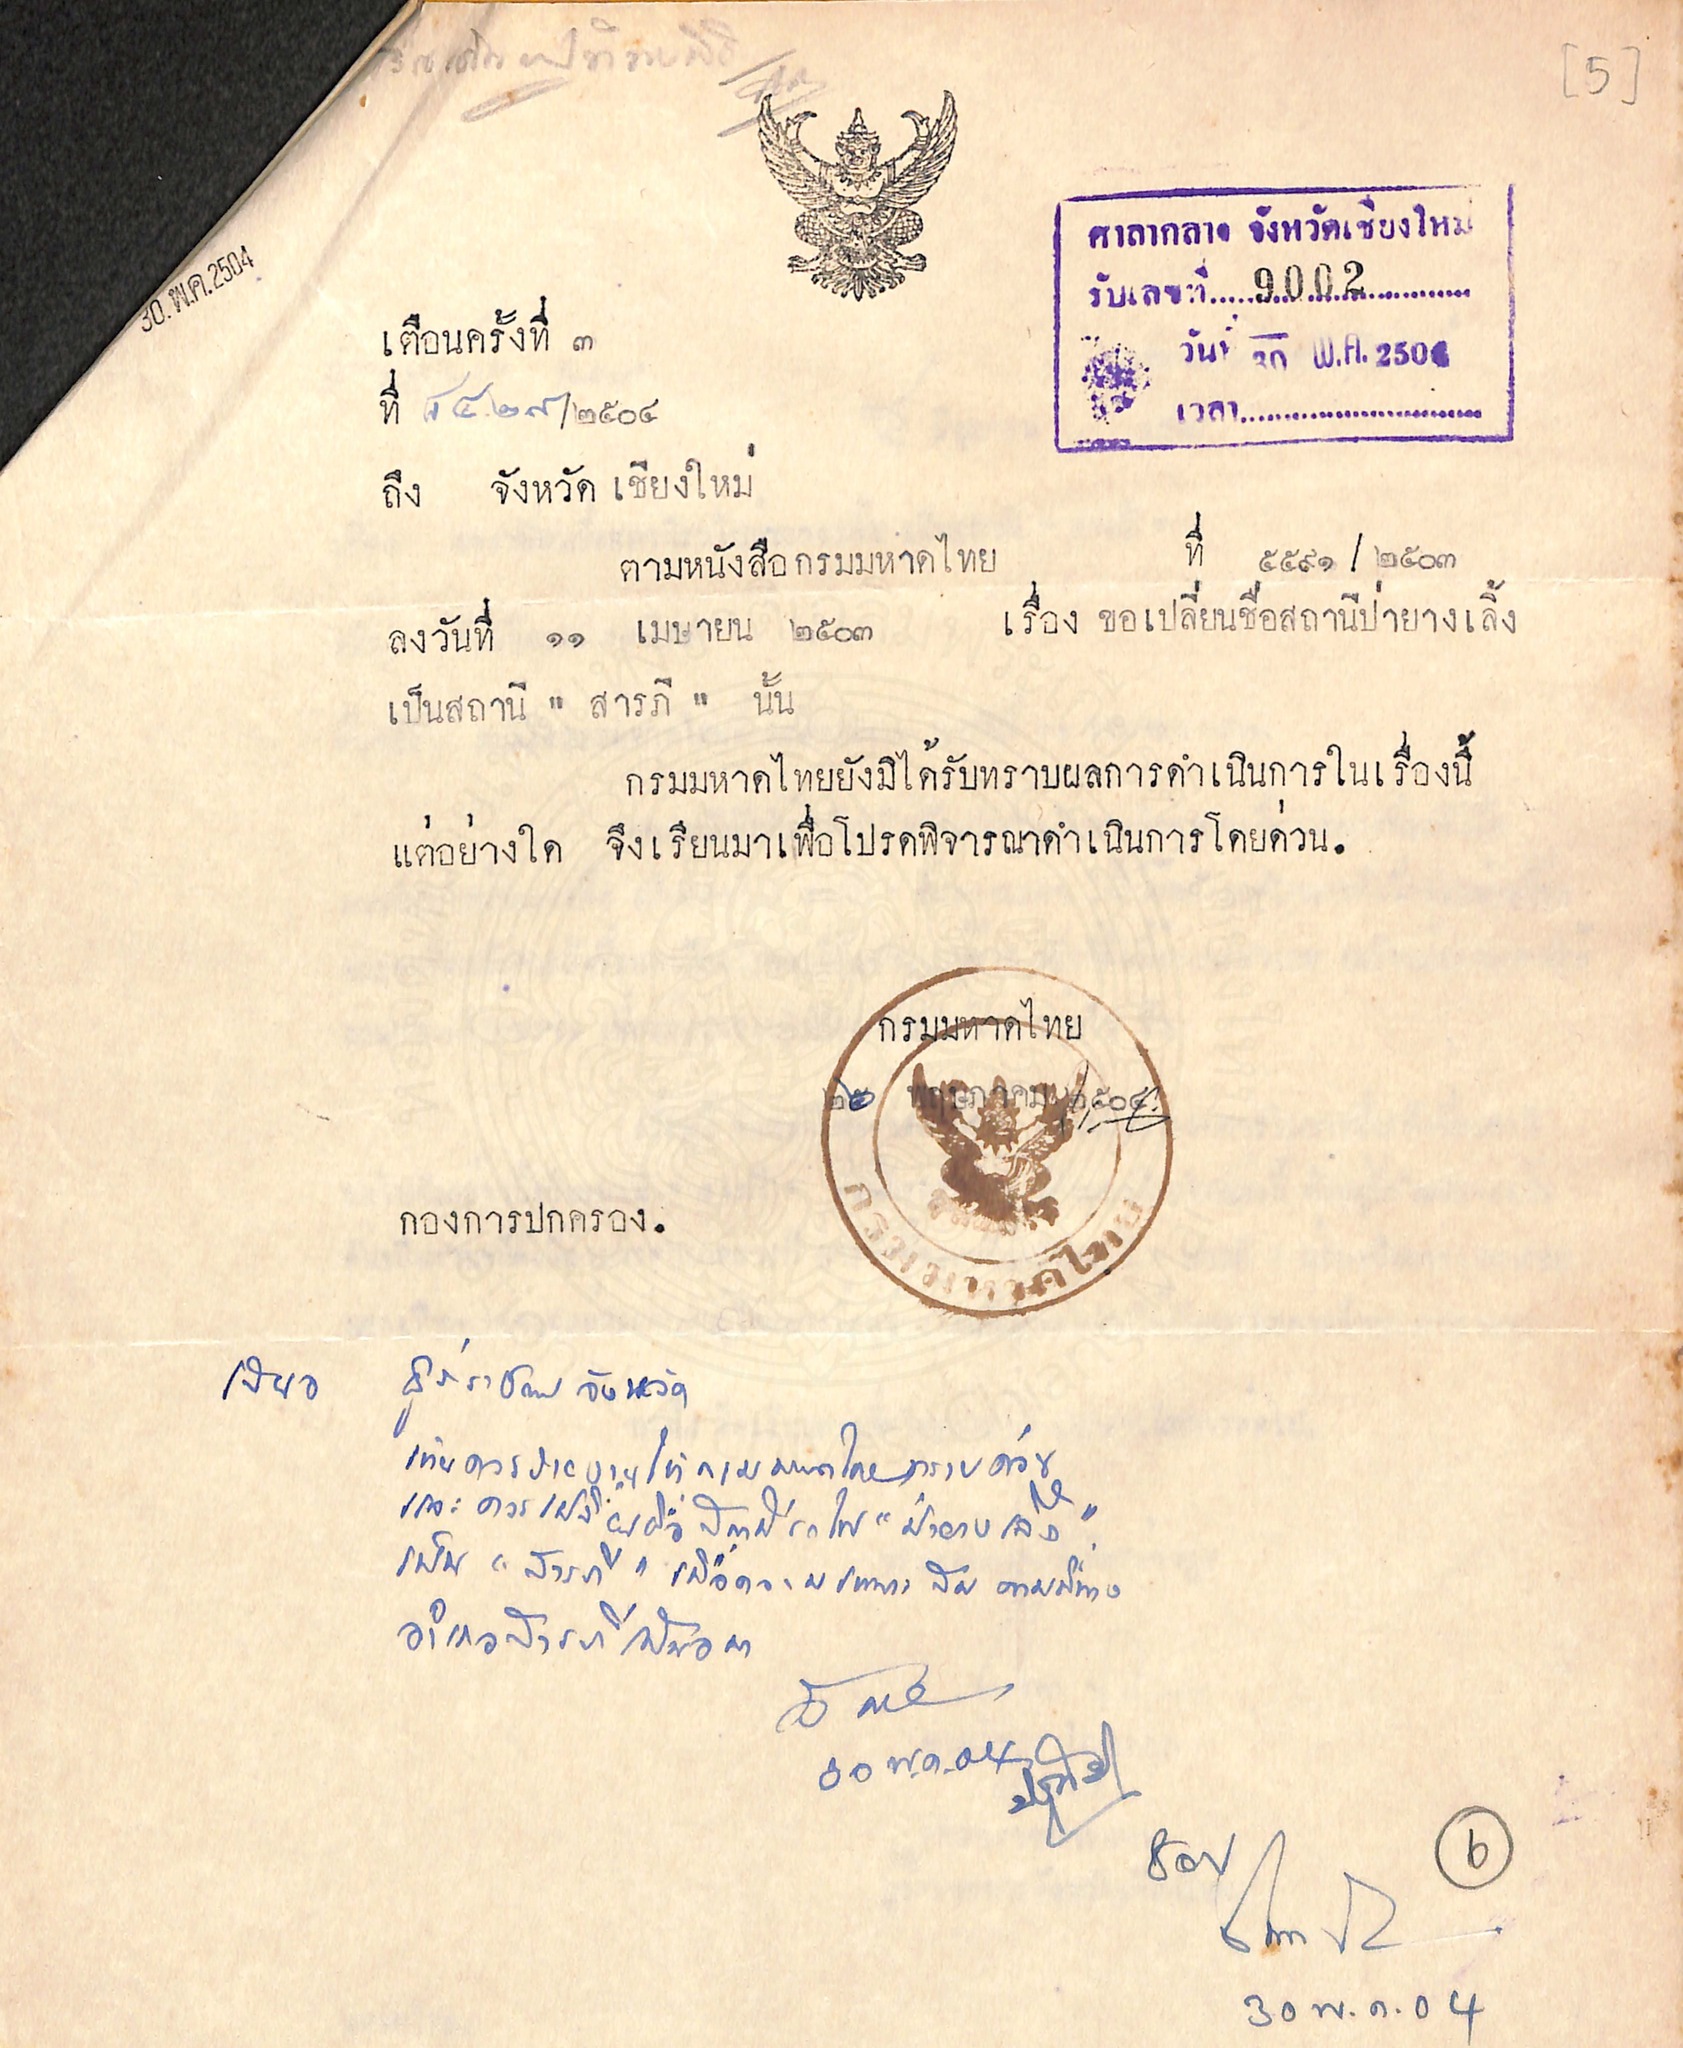 [5]
ศาลากลาง จังหวัดเชียงใหม่
รับเลขที่ 9002
วันที่ 30 พ.ค. 2504
เวลา
30.พ.ค.2504
เตือนครั้งที่ ๓
ที่ /๒๕๐๔
ถึง จังหวัด เชียงใหม่
ตามหนังสือกรมมหาดไทย ที่ ๕๕๙๑ / ๒๕๐๓
ลงวันที่ ๑๑ เมษายน ๒๕๐๓ เรื่อง ขอเปลี่ยนชื่อสถานีป่ายางเลิ้ง
เป็นสถานี " สารภี " นั้น
กรมมหาดไทยยังมิได้รับทราบผลการดำเนินการในเรื่องนี้
แต่อย่างใด จึงเรียนมาเพื่อโปรดพิจารณาดำเนินการโดยด่วน.
กรมมหาดไทย
พฤษภาคม ๒๕๐๔
กรมมหาดไทย
กองการปกครอง.
เสนอ ผู้ว่าราชการจังหวัด
เห็นควรรายงานให้กรมมหาดไทยทราบด้วย
และควรเปลี่ยนชื่อสถานีรถไฟ "ป่ายางเลิ้ง"
เป็น "สารภี" เพื่อความเหมาะสม ตามที่ทาง
อำเภอสารภีเสนอมา
30 พ.ค. 04
ชอบ
6
30 พ.ค. 04